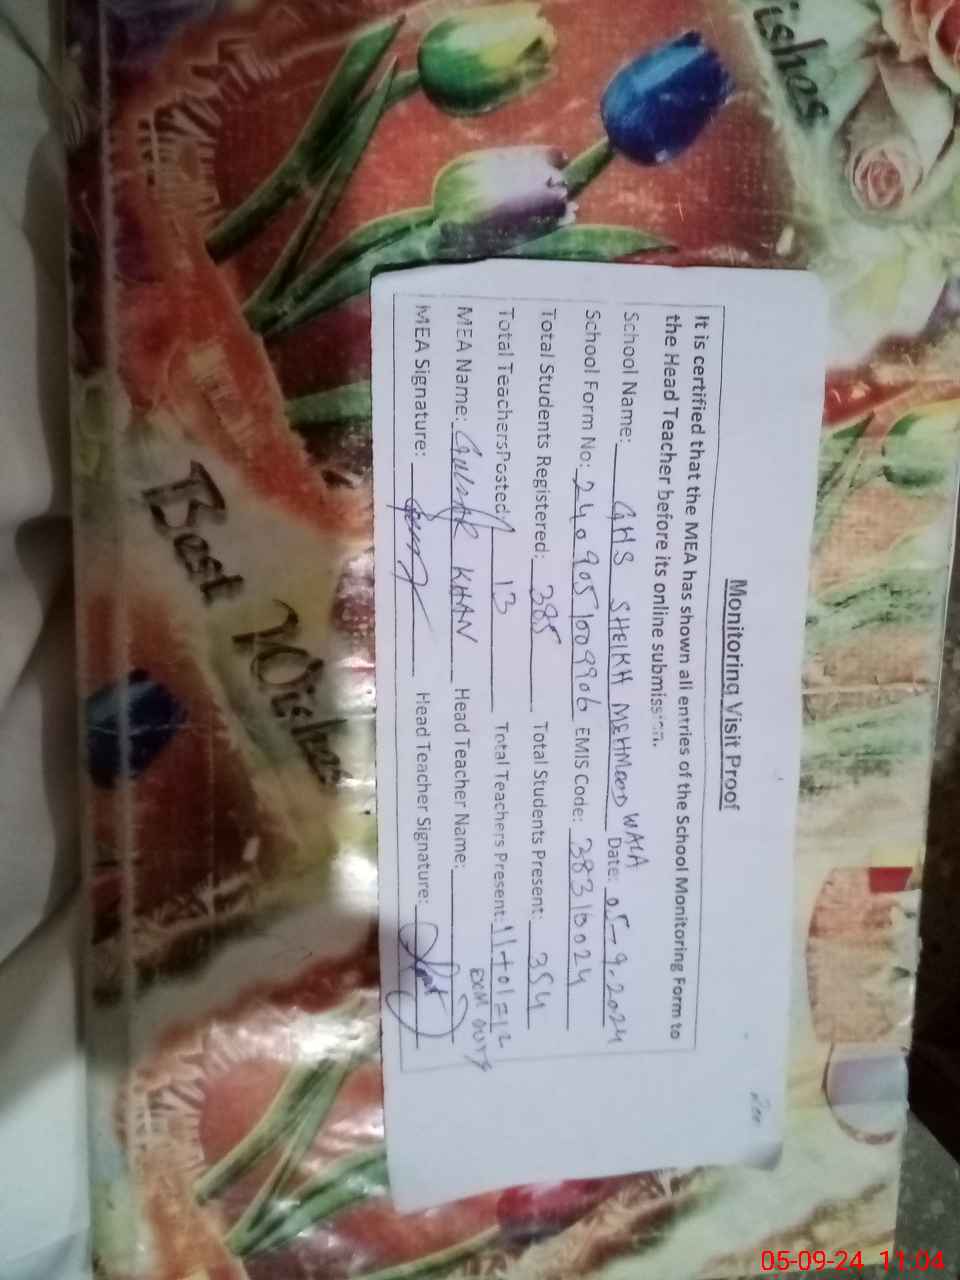 ishes
Monitoring Visit Proof
It is certified that the MEA has shown all entries of the School Monitoring Form to
the Head Teacher before its online submission.
School Name: GHS SHEIKH MEHMOOD WALA Date: 05-9-2024
School Form No: 2409051009906 EMIS Code: 38310024
Total Students Registered: 385 Total Students Present: 354
Total Teachers Posted: 13 Total Teachers Present: 11+01=12
EXM DUTY
MEA Name: GULZAR KHAN Head Teacher Name:
MEA Signature: Head Teacher Signature:
Best Wishes
05-09-24 11:04